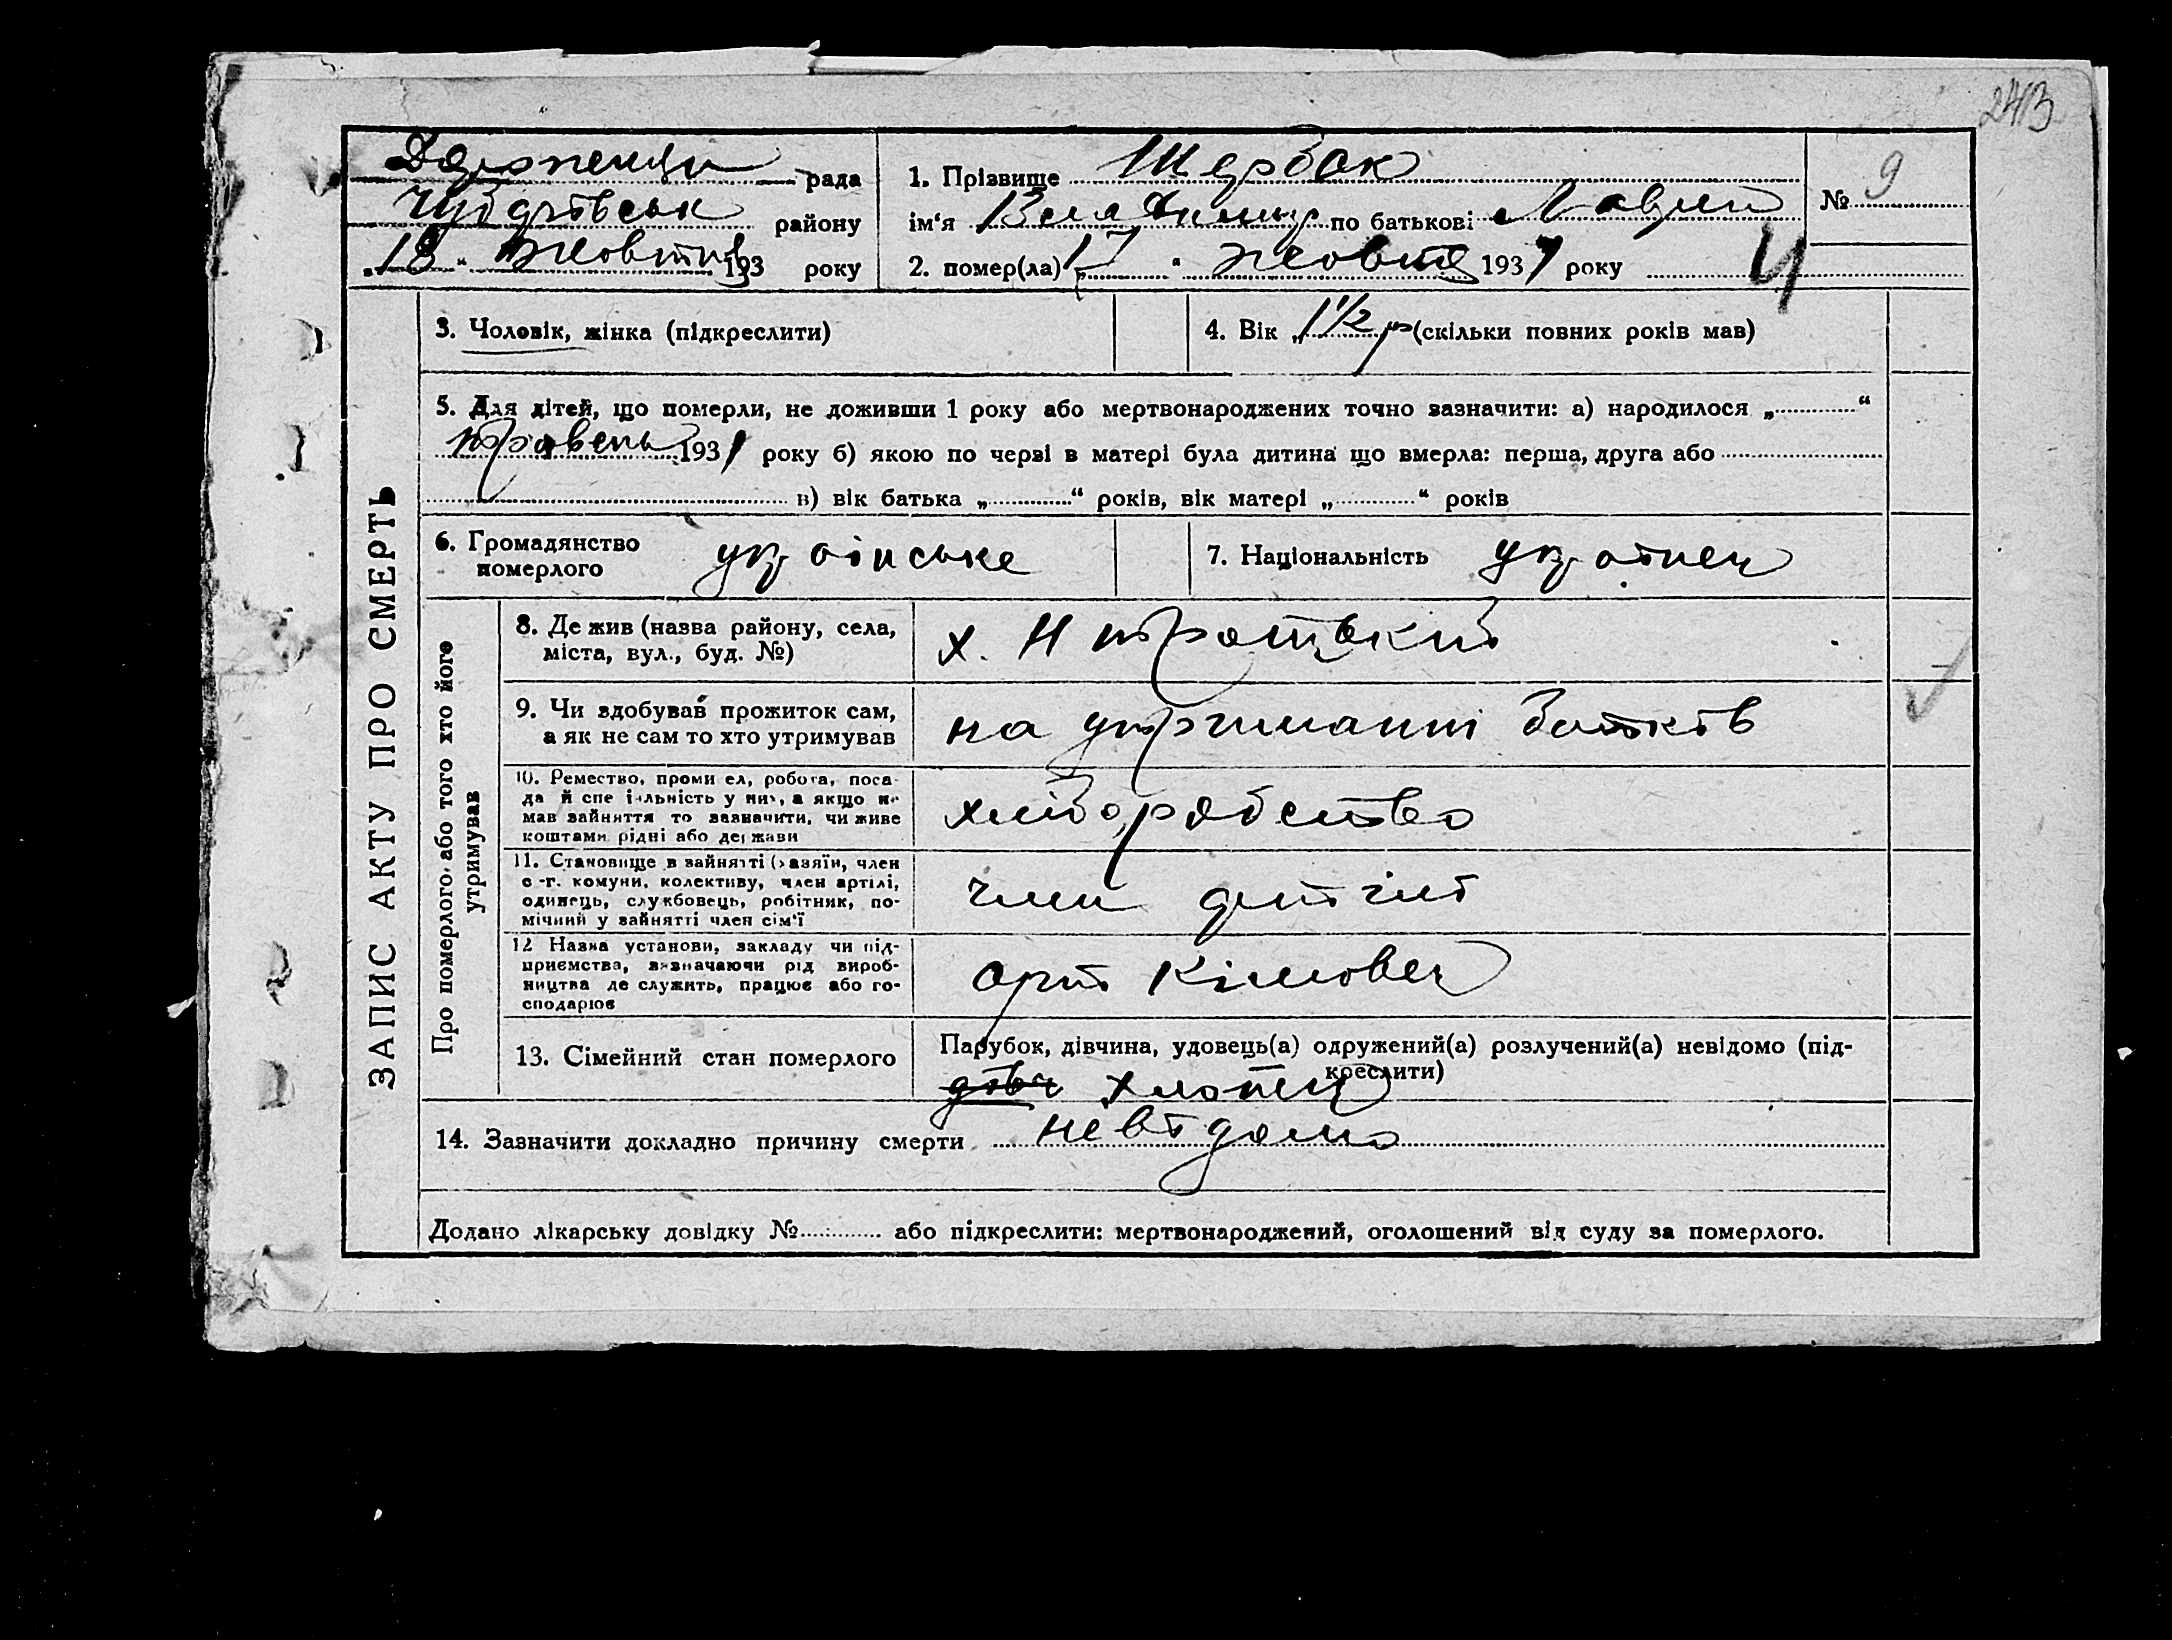 2413
рада
района
№ 9
1. Прізвище Щербак
ім‘я по батькові
18 " жовтня 193 року
2. помер(ла) 17 " жовтня 1931 року Ч
ЗАПИС АКТУ ПРО СМЕРТЬ
3. Чоловік, жінка (підкреслити)
4. Вік „ 1 1/2 р (скільки повних років мав)
5. Для дітей, що померли, не доживши 1 року або мертвонароджених точно зазначити: а) народилося „ “
травень 1931 року б) якою по черзі в матері була дитина що вмерла: перша, друга або
в) вік батька „ “ років, вік матері „ “ років
6. Громадянство
померлого українське
7. Національність украінец
Про померлого, або того хто його
утримував
8. Де жив (назва району, села,
міста, вул., буд. №)
х. Н
9. Чи здобував прожиток сам,
а як не сам то хто утримував
на утриманні батьків
10. Ремество, проми ел, робота, поса-
да й спе іальність у них, а якщо не
мав зайняття то зазначити, чи живе
коштами рідні або держави
хліборобство
11. Становище в зайнятті (хазяїн, член
с.-г. комуни, колективу, член артілі,
одинець, службовець, робітник, по-
мічний у зайнятті член сім‘ї
член артілі
12 Назва установи, закладу чи під-
приємства, визначаючи рід вироб-
ництва де служить, працює або го-
сподарює
арт Кімовец
13. Сімейний стан померлого
Парубок, дівчина, удовець(а) одружений(а) розлучений(а) невідомо (під-
креслити)
хлопец
14. Зазначити докладно причину смерти невідомо
Додано лікарську довідку № або підкреслити: мертвонароджений, оголошений від суду за померлого.